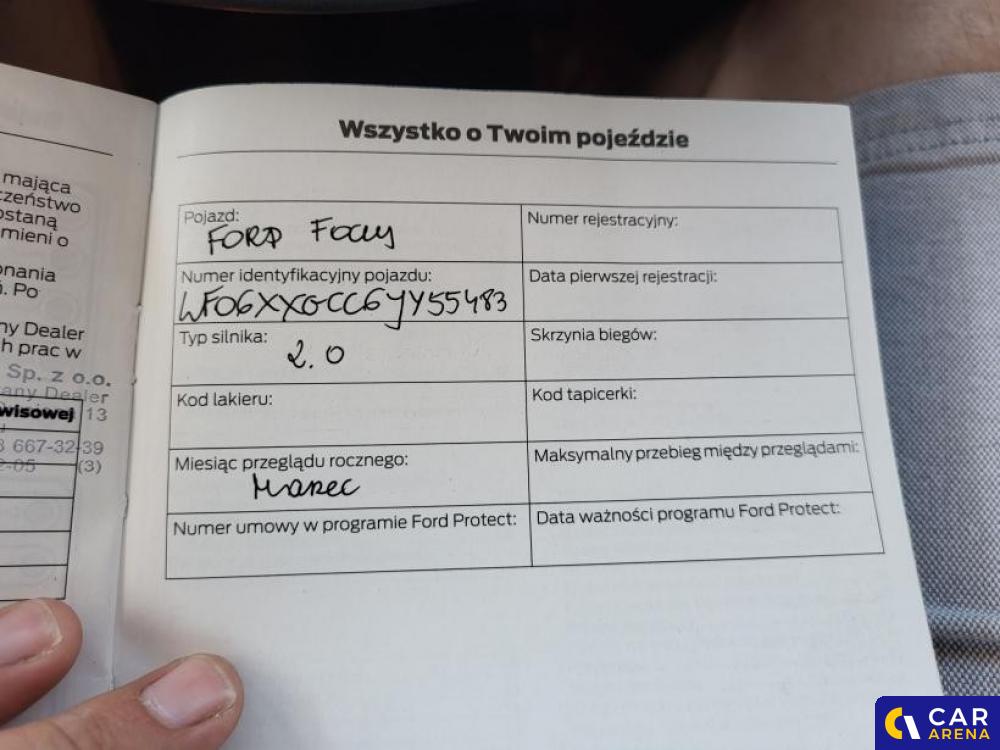 mająca
zeństwo
ostaną
mieni o
onania
. Po
ny Dealer
h prac w
Sp. z o.o.
any Dealer
wisowej 13
667-32-39
2-05 (3)
Wszystko o Twoim pojeździe
Pojazd:
FORD Focus
Numer rejestracyjny:
Numer identyfikacyjny pojazdu:
WF06XXGCC6JY55483
Data pierwszej rejestracji:
Typ silnika:
2.0
Skrzynia biegów:
Kod lakieru:
Kod tapicerki:
Miesiąc przeglądu rocznego:
Marzec
Maksymalny przebieg między przeglądami:
Numer umowy w programie Ford Protect:
Data ważności programu Ford Protect:
CAR
ARENA